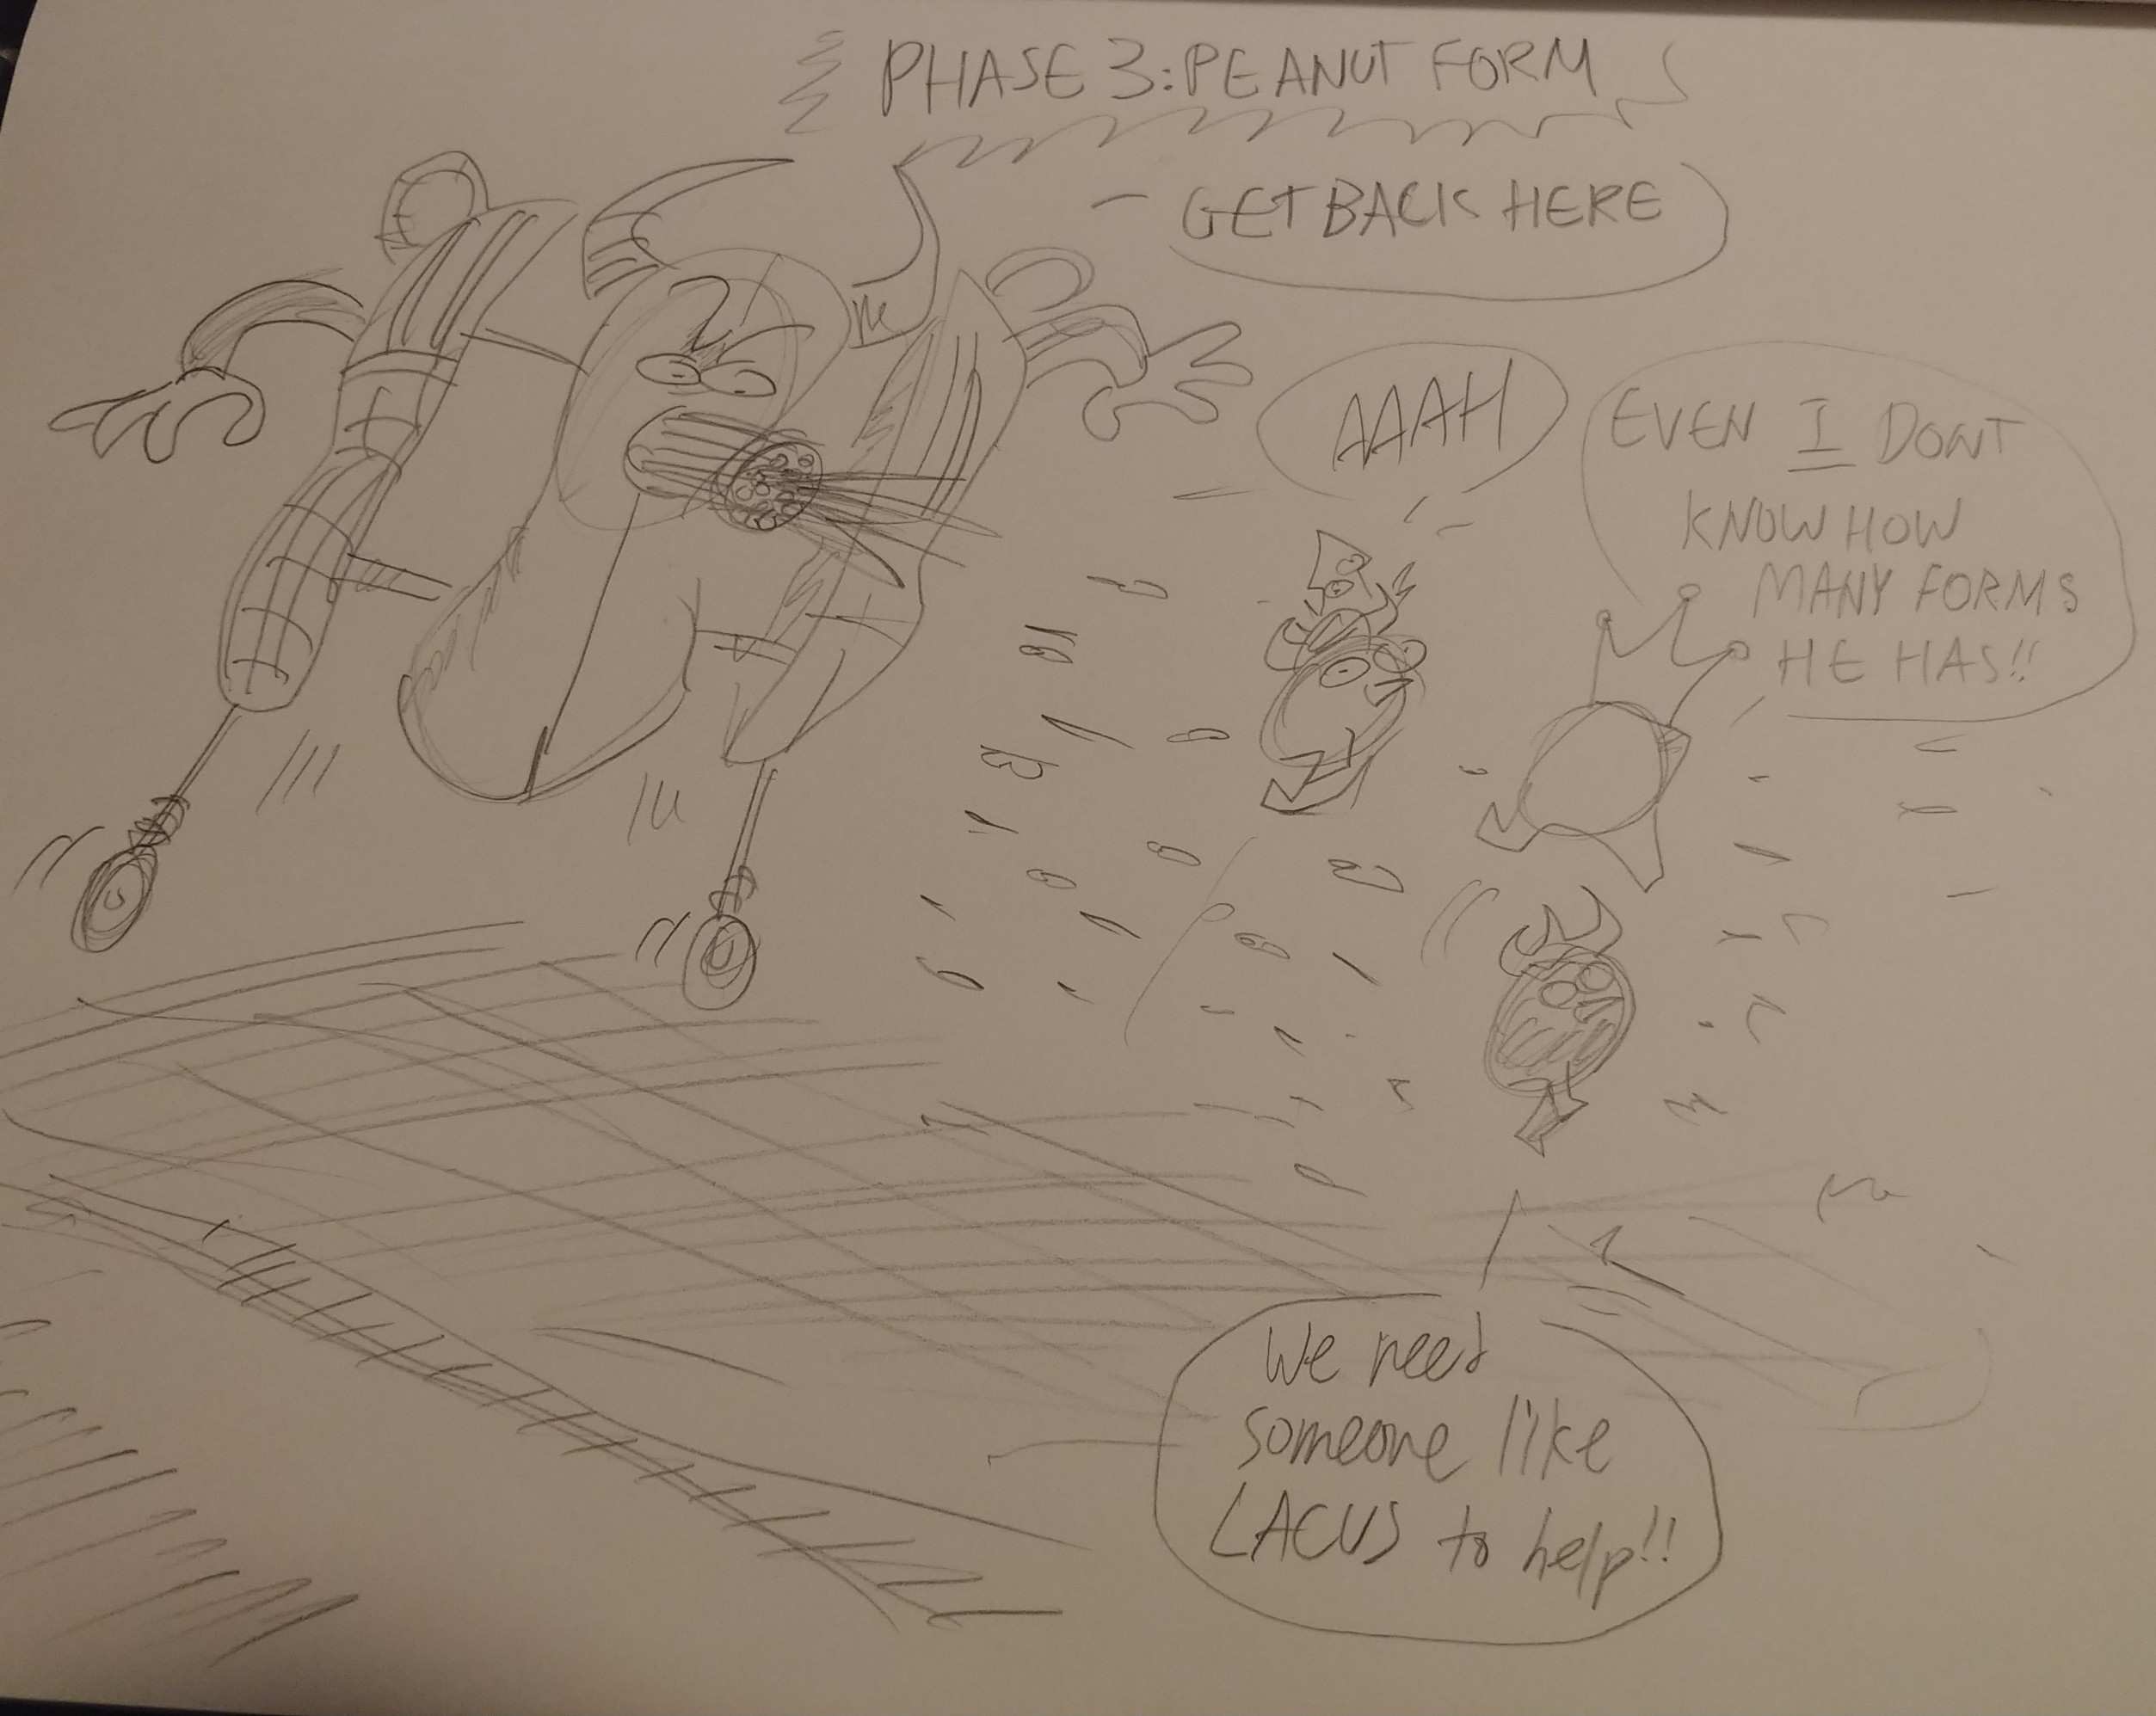 PHASE 3: PEANUT FORM
GET BACK HERE
AAAH
EVEN I DONT
KNOW HOW
MANY FORMS
HE HAS!!
We need
someone like
LACUS to help!!